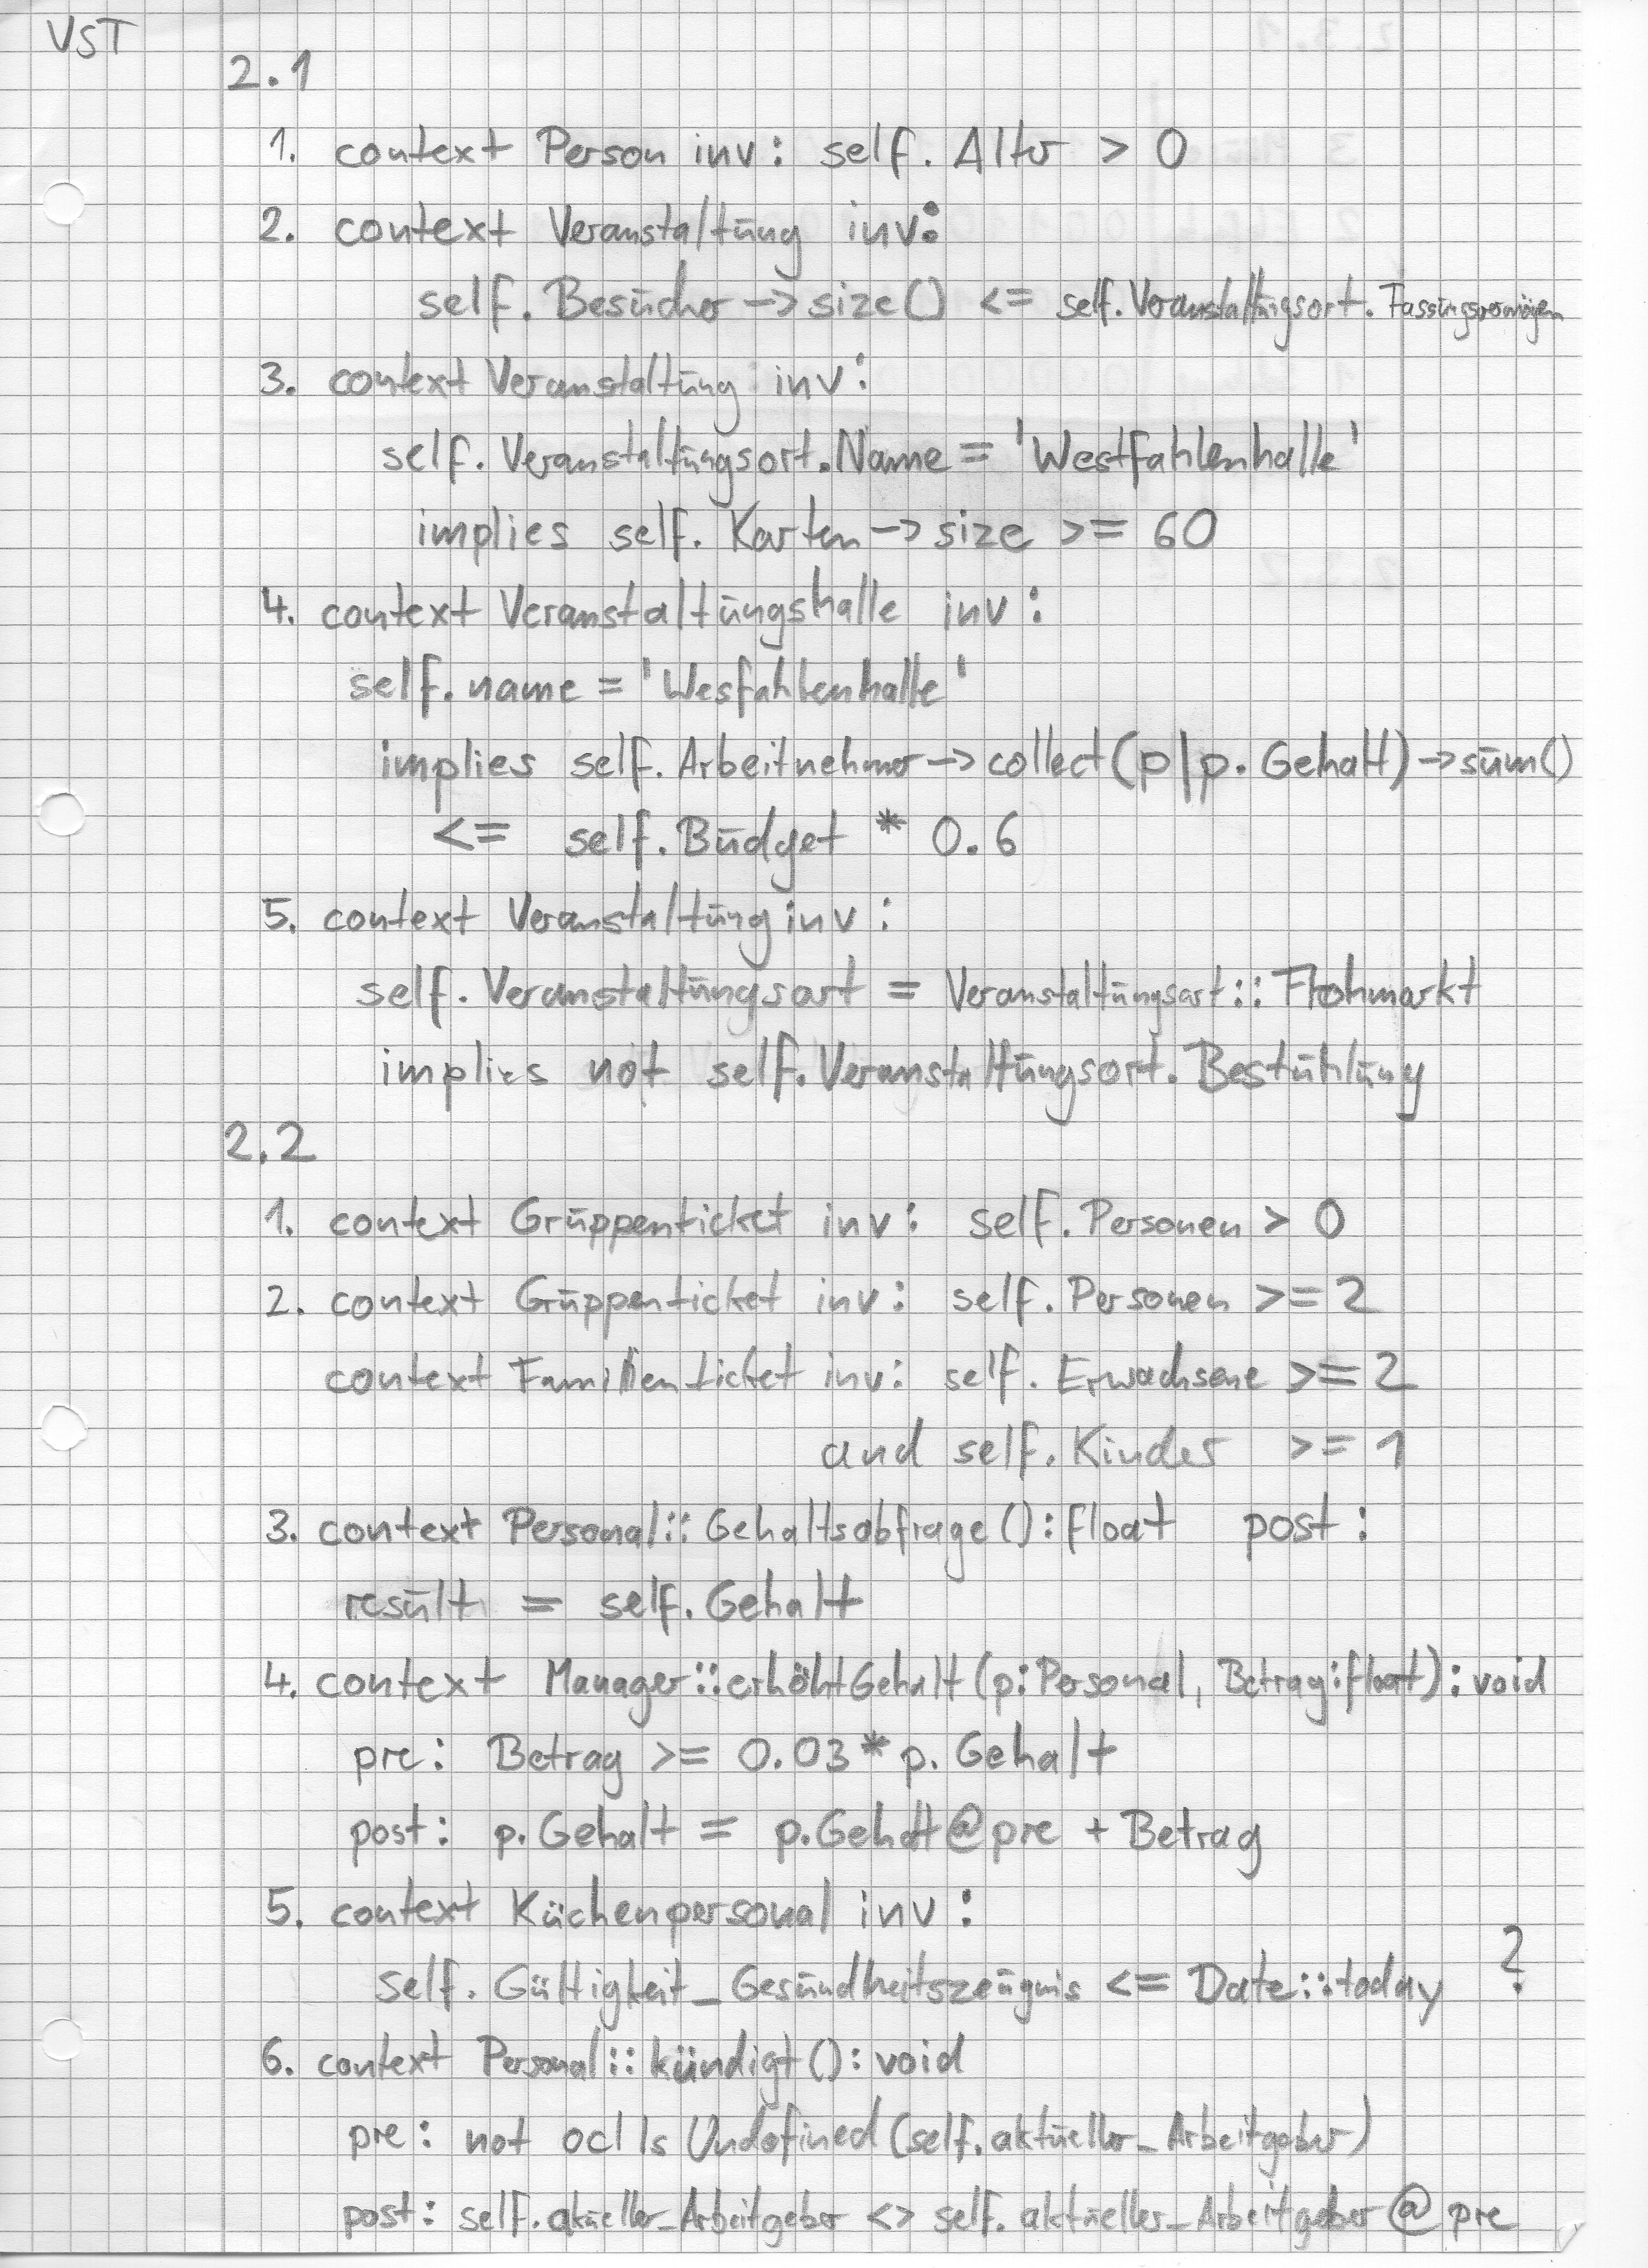 VST
2.1
1. context Person inv: self. Alter > 0
2. context Veranstaltung inv:
self. Besucher -> size() <= self. Veranstaltungsort. Fassungsvermögen
3. context Veranstaltung inv:
self. Veranstaltungsort. Name = 'Westfahlenhalle'
implies self. Karten -> size >= 60
4. context Veranstaltungshalle inv:
self. name = 'Wesfahlenhalle'
implies self. Arbeitnehmer -> collect(p|p. Gehalt) -> sum()
<= self. Budget * 0.6
5. context Veranstaltung inv:
self. Veranstaltungsart = Veranstaltungsart:: Flohmarkt
implies not self. Veranstaltungsort. Bestuhlung
2.2
1. context Gruppenticket inv: self. Personen > 0
2. context Gruppenticket inv: self. Personen >= 2
context Familienticket inv: self. Erwachsene >= 2
and self. Kinder >= 1
3. context Personal:: Gehaltsabfrage(): float post:
result = self. Gehalt
4. context Manager:: erhöhtGehalt (p: Personal, Betrag: float): void
pre: Betrag >= 0.03 * p. Gehalt
post: p. Gehalt = p. Gehalt@pre + Betrag
5. context Küchenpersonal inv:
self. Gültigkeit_Gesundheitszeugnis <= Date::today ?
6. context Personal:: kündigt(): void
pre: not oclIsUndefined (self. aktueller_Arbeitgeber)
post: self. akueller_Arbeitgeber <> self. aktueller_Arbeitgeber @ pre